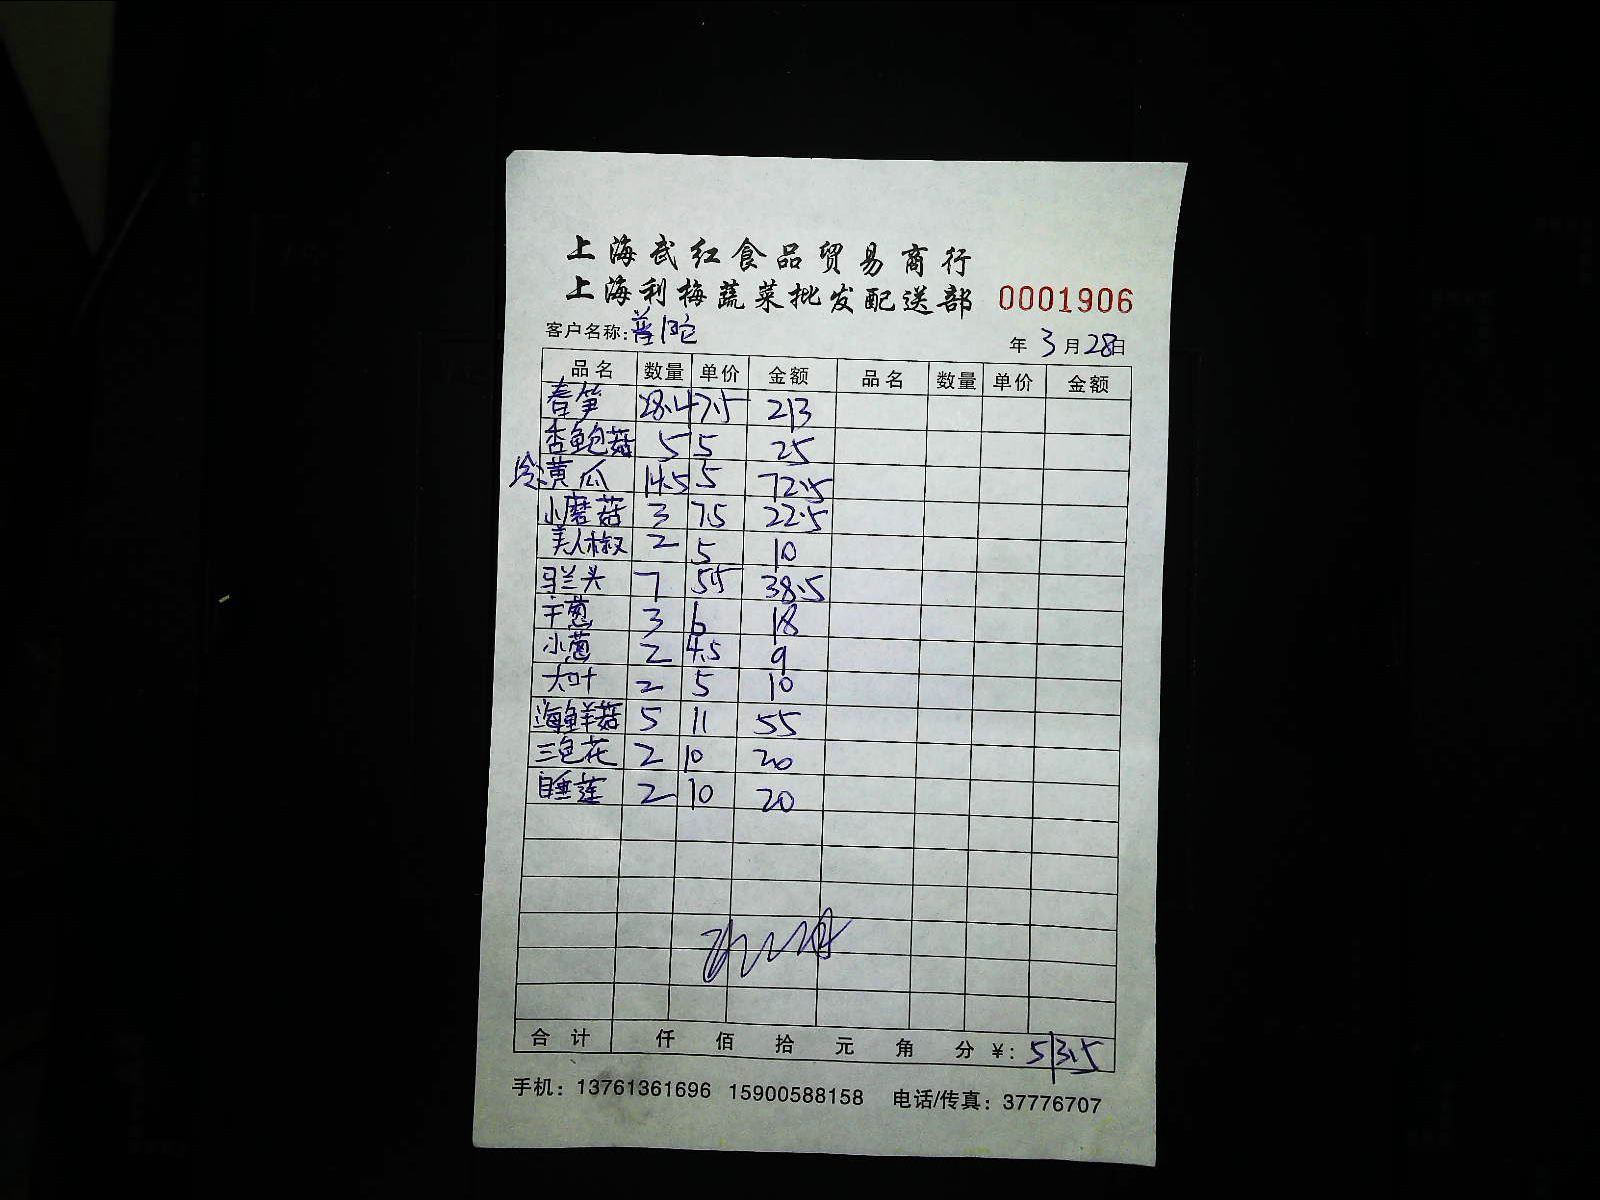 上海武红食品贸易商行
上海利梅蔬菜批发配送部 0001906
客户名称:普陀 年 3 月 28 日
品名 数量 单价 金额 品名 数量 单价 金额
春笋 28.4 7.5 213
杏鲍菇 5 5 25
冷:黄瓜 14.5 5 72.5
小磨菇 3 7.5 22.5
美人椒 2 5 10
马兰头 7 5.5 38.5
干葱 3 6 18
小葱 2 4.5 9
大叶 2 5 10
海鲜菇 5 11 55
三色花 2 10 20
睡莲 2 10 20
合计 仟 佰 拾 元 角 分 ¥: 513.5
手机: 13761361696 15900588158 电话/传真: 37776707